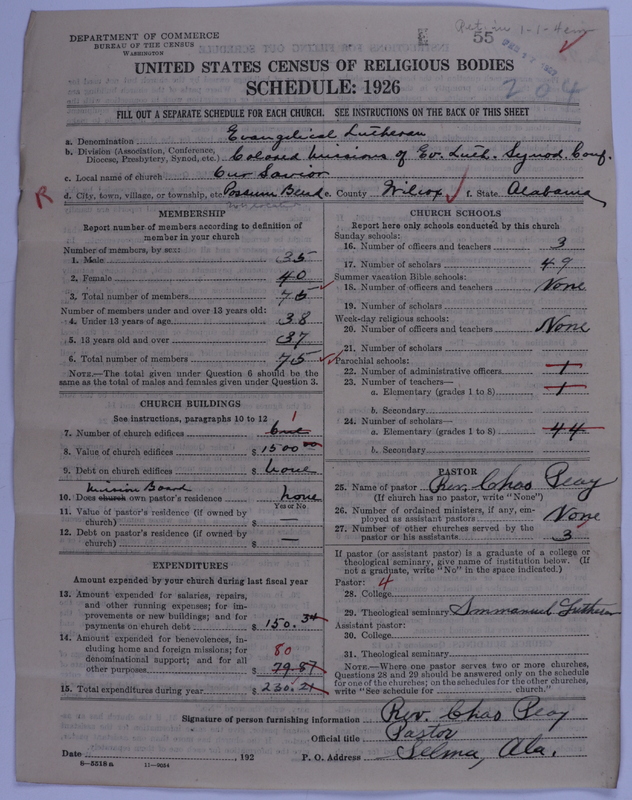 DEPARTMENT OF COMMERCE
BUREAU OF THE CENSUS
WASHINGTON
E 55
1-1-4
204
UNITED STATES CENSUS OF RELIGIOUS BODIES
SCHEDULE: 1926
FILL OUT A SEPARATE SCHEDULE FOR EACH CHURCH. SEE INSTRUCTIONS ON THE BACK OF THIS SHEET
a. Denomination Evangelical Lutheran
b. Division (Association, Conference, Diocese, Presbytery, Synod, etc.) Colored Missions of Ev. Luth. Synod. Conf.
c. Local name of church Our Savior
R d. City, town, village, or township, etc. Possum Bend e. County Wilcox f. State Alabama
MEMBERSHIP
Report number of members according to definition of member in your church
Number of members, by sex:
1. Male 35
2. Female 40
3. Total number of members 75
Number of members under and over 13 years old:
4. Under 13 years of age 38
5. 13 years old and over 37
6. Total number of members 75
NOTE.—The total given under Question 6 should be the same as the total of males and females given under Question 3.
CHURCH BUILDINGS
See instructions, paragraphs 10 to 12
7. Number of church edifices one 1
8. Value of church edifices $ 1500 00
9. Debt on church edifices $ none
Mission Board
10. Does church own pastor's residence none
Yes or No
11. Value of pastor's residence (if owned by church) $ —
12. Debt on pastor's residence (if owned by church) $ —
EXPENDITURES
Amount expended by your church during last fiscal year
13. Amount expended for salaries, repairs, and other running expenses; for improvements or new buildings; and for payments on church debt $ 150.34
14. Amount expended for benevolences, including home and foreign missions; for denominational support; and for all other purposes $ 79.87 80
15. Total expenditures during year $ 230.21
CHURCH SCHOOLS
Report here only schools conducted by this church
Sunday schools:
16. Number of officers and teachers 3
17. Number of scholars 49
Summer vacation Bible schools:
18. Number of officers and teachers None
19. Number of scholars
Week-day religious schools:
20. Number of officers and teachers None
21. Number of scholars
Parochial schools:
22. Number of administrative officers 1
23. Number of teachers—
a. Elementary (grades 1 to 8) 1
b. Secondary
24. Number of scholars—
a. Elementary (grades 1 to 8) 44
b. Secondary
PASTOR
25. Name of pastor Rev. Chas Peay
(If church has no pastor, write "None")
26. Number of ordained ministers, if any, employed as assistant pastors None
27. Number of other churches served by the pastor or his assistants 3
If pastor (or assistant pastor) is a graduate of a college or theological seminary, give name of institution below. (If not a graduate, write "No" in the space indicated.)
Pastor: 4
28. College
29. Theological seminary Immanuel Lutheran
Assistant pastor:
30. College
31. Theological seminary
NOTE.—Where one pastor serves two or more churches, Questions 28 and 29 should be answered only on the schedule for one of the churches; on the schedules for the other churches, write "See schedule for church."
Signature of person furnishing information Rev. Chas Peay
Official title Pastor
Date , 192 P. O. Address Selma, Ala.
8-5518a 11-9034